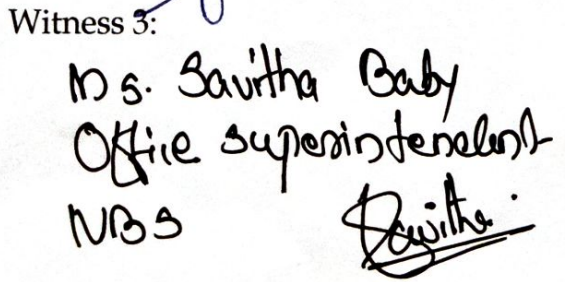 Witness 3:
Ms. Savitha Baby
Office Superintendent
NBS
Savitha.